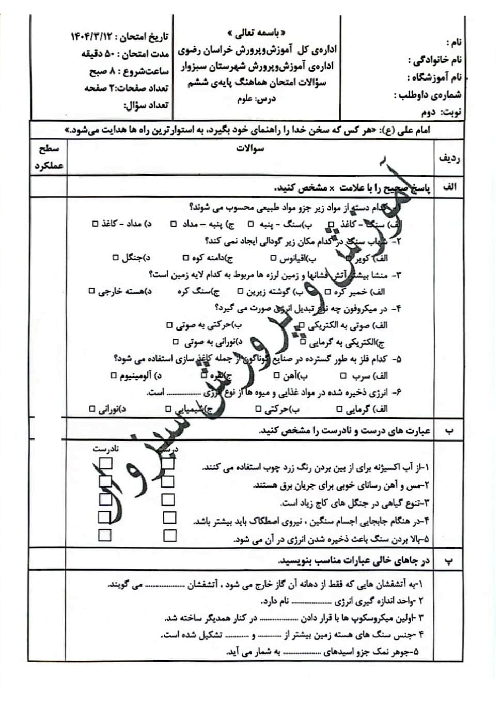 « باسمه تعالی »
اداره‌ی کل آموزش‌وپرورش خراسان رضوی
اداره‌ی آموزش‌وپرورش شهرستان سبزوار
سؤالات امتحان هماهنگ پایه‌ی ششم
درس: علوم
نام :
نام خانوادگی :
نام آموزشگاه :
شماره‌ی داوطلب :
نوبت: دوم
تاریخ امتحان : ۱۴۰۴/۳/۱۲
مدت امتحان : ۵۰ دقیقه
ساعت‌شروع : ۸ صبح
تعداد صفحات:۲ صفحه
تعداد سؤال:
امام علی (ع): «هر کس که سخن خدا را راهنمای خود بگیرد، به استوارترین راه ها هدایت می‌شود.»
ردیف سوالات سطح عملکرد
الف پاسخ صحیح را با علامت × مشخص کنید.
کدام دسته از مواد زیر جزو مواد طبیعی محسوب می شوند؟
الف) سنگ - کاغذ ب)سنگ - پنبه ج) پنبه – مداد د) مداد - کاغذ
۲- شهاب سنگ در کدام مکان زیر گودالی ایجاد نمی کند؟
الف) کویر ب)اقیانوس ج)دامنه کوه د)جنگل
۳- منشا بیشتر آتش فشانها و زمین لرزه ها مربوط به کدام لایه زمین است؟
الف) خمیر کره ب) گوشته زیرین ج)سنگ کره د)هسته خارجی
۴- در میکروفون چه نوع تبدیل انرژی صورت می گیرد؟
الف) صوتی به الکتریکی ب)حرکتی به صوتی
ج)الکتریکی به گرمایی د)نورانی به صوتی
۵- کدام فلز به طور گسترده در صنایع گوناگون از جمله کاغذ سازی استفاده می شود؟
الف) سرب ب)آهن ج)نقره د) آلومینیوم
۶- انرژی ذخیره شده در مواد غذایی و میوه ها از نوع انرژی ............... است.
الف) گرمایی ب)حرکتی ج)شیمیایی د)نورانی
ب عبارت های درست و نادرست را مشخص کنید.
درست نادرست
۱-از آب اکسیژنه برای از بین بردن رنگ زرد چوب استفاده می کنند.
۲-مس و آهن رسانای خوبی برای جریان برق هستند.
۳-تنوع گیاهی در جنگل های کاج زیاد است.
۴-در هنگام جابجایی اجسام سنگین ، نیروی اصطکاک باید بیشتر باشد.
۵-بالا بردن سنگ باعث ذخیره شدن انرژی در آن می شود.
پ در جاهای خالی عبارات مناسب بنویسید.
۱-به آتشفشان هایی که فقط از دهانه آن گاز خارج می شود ، آتشفشان ............... می گویند.
۲-واحد اندازه گیری انرژی ............... نام دارد.
۳-اولین میکروسکوپ ها با قرار دادن ............... در کنار همدیگر ساخته شد.
۴- جنس سنگ های هسته زمین بیشتر از .......... و .......... تشکیل شده است.
۵-جوهر نمک جزو اسیدهای ............... به شمار می آید.
آموزش و پرورش سبزوار